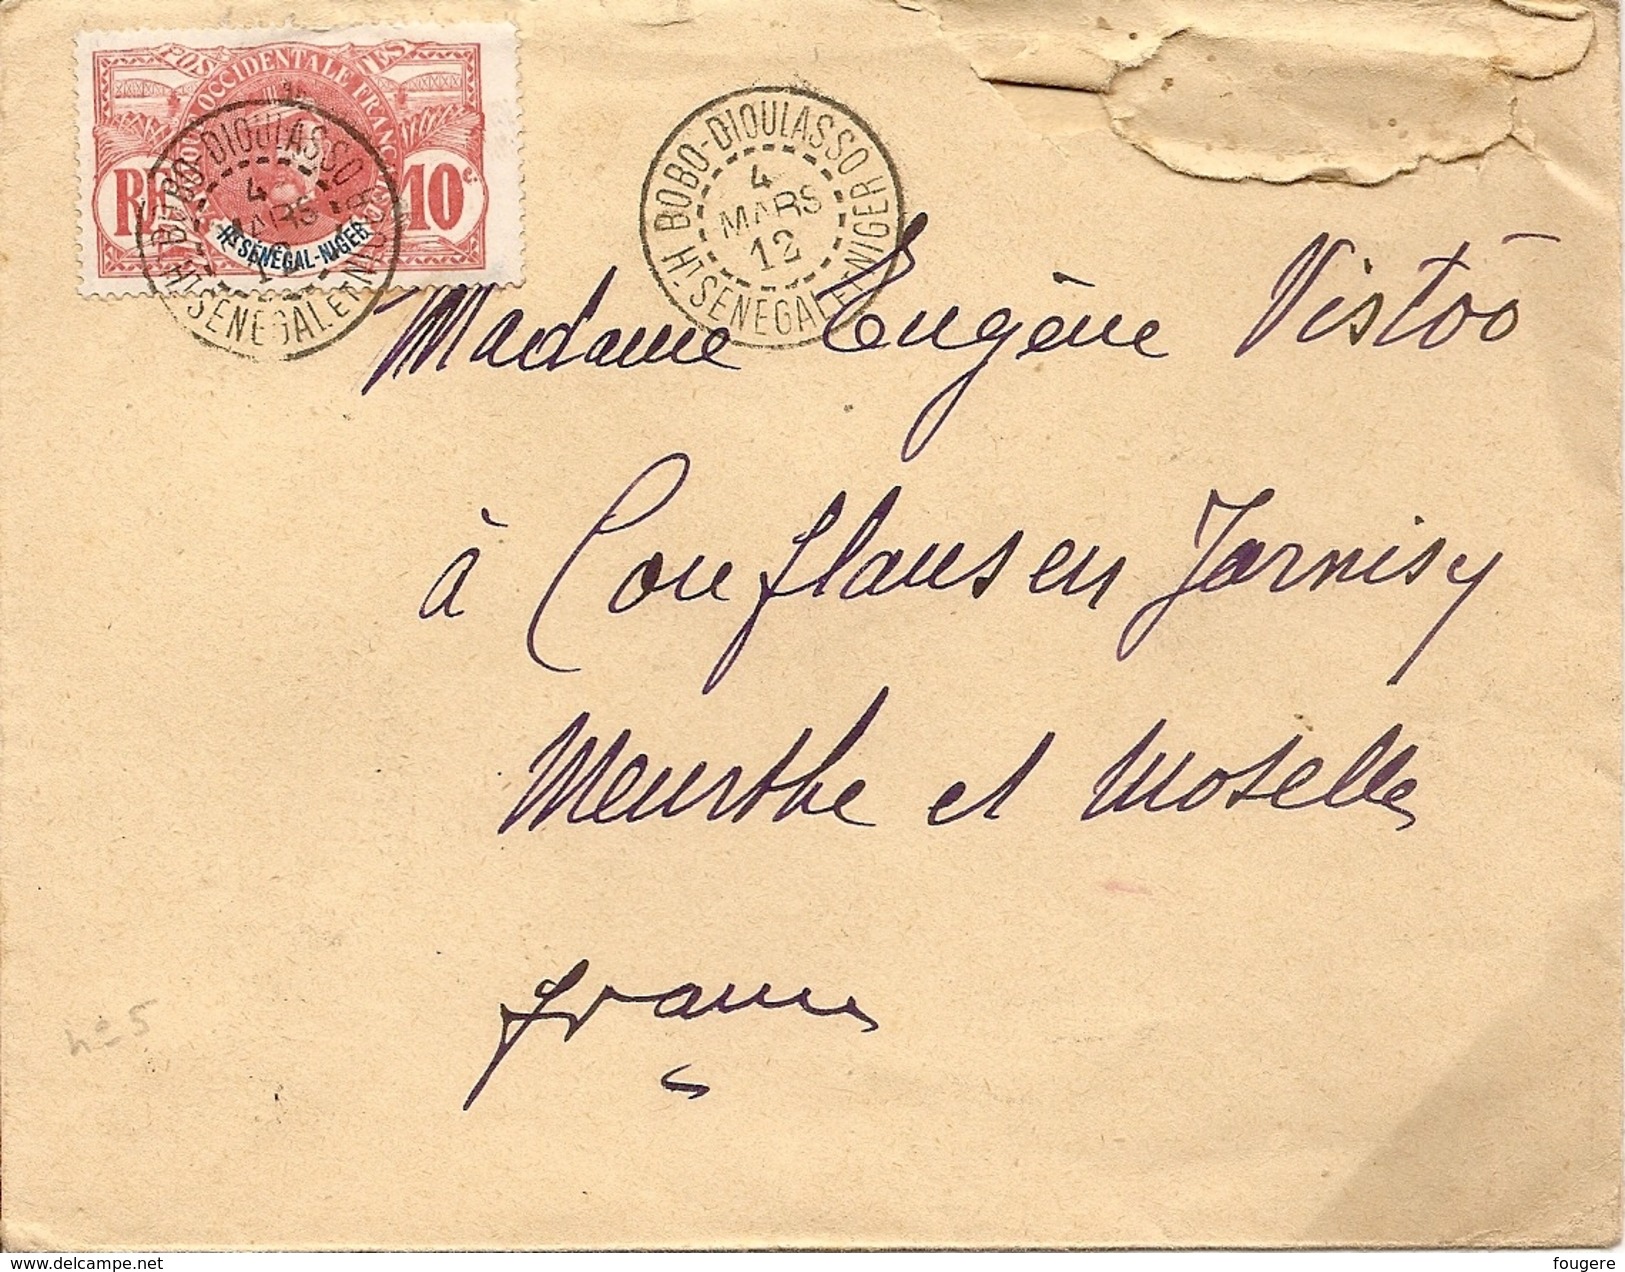 POSTES
AFRIQUE OCCIDENTALE FRANÇAISE
RF 10c
Ht SÉNÉGAL-NIGER
BOBO-DIOULASSO
4
MARS
12
Ht SENEGAL ET NIGER
BOBO-DIOULASSO
4
MARS
12
Ht SENEGAL ET NIGER
Madame Eugène Vistoô
à Conflans en Jarnisy
Meurthe et Moselle
france
n° 5
delcampe.net
fougere